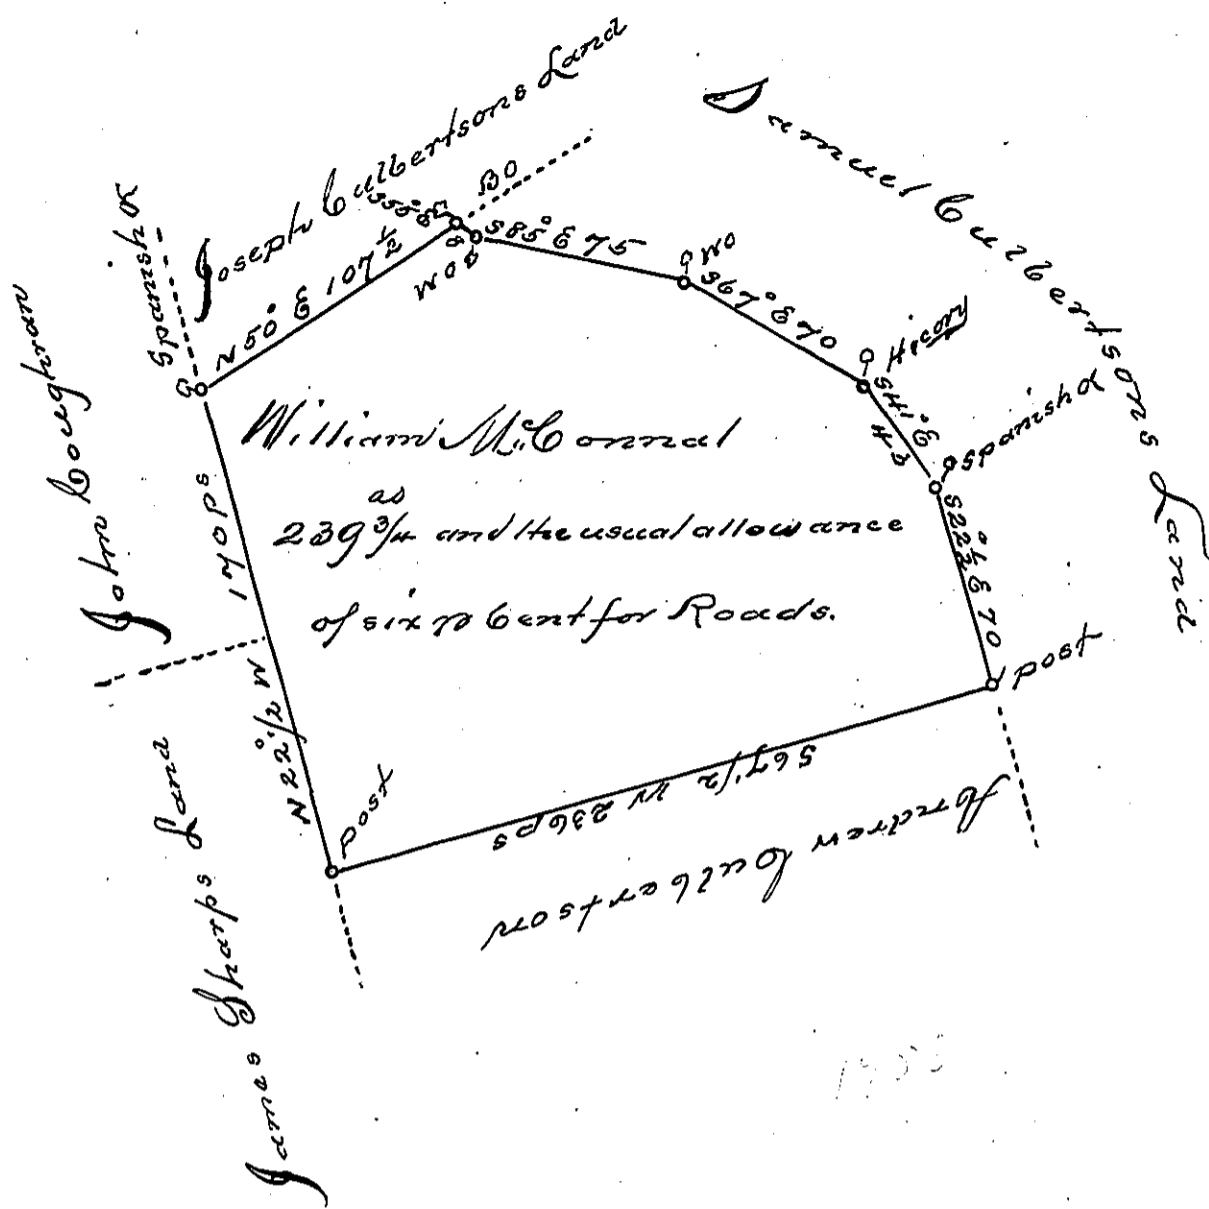 Joseph Culbertsons Land
Samuel Culbertsons Land
John Coughran
James Sharps Land
Andrew Culbertson
Spanish O
N 50° E 107 1/2
S 55° E 8
BO
WOS
S 85° E 75
WO
S 67° E 70
Hicory
S 41° E 43
Spanish O
S 22 1/2° E 70
Post
S 67 1/2 W 236 ps
Post
N 22° 1/2 W 170 ps
William McConnal
as
239 3/4 and the usual allowance
of six ⅌ Cent for Roads.